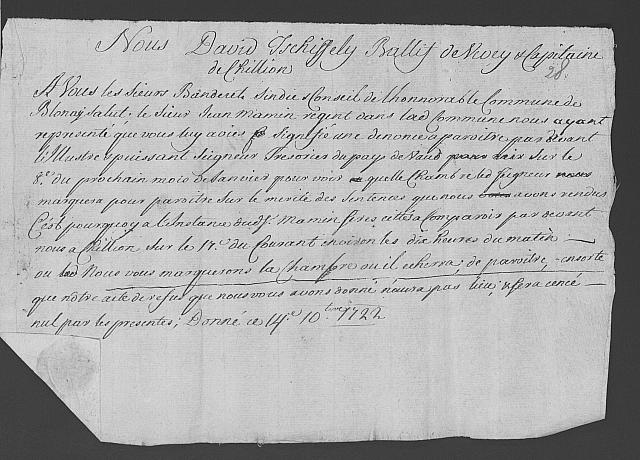 Nous David Tschiffely Ballif de Vevey & Capitaine
de Chillion
28.
A Vous les Sieurs Banderet, Sindic & Conseil de l'honnorable Commune de
Blonay Salut; le Sieur Jean Mamin regent dans lad Commune nous ayant
representé que vous luy aviés signifié une denonce a paroitre par devant
l'Illustre & puissant Seigneur Tresorier du pays de Vaud sur le
8.e du prochain mois de Janvier pour voir quelle Chambre led Seigneur
marquera pour paroitre sur le merite des Sentences que nous avons rendus
C'est pourquoy a l'instance dud Sr. Mamin serés cittés a Comparoir par devant
nous a Chillion sur le 17.e du Courant environ les dix heures du matin
ou Nous vous marquerons la Chambre ou il echerra, de paroitre, ensorte
que nôtre acte de refus que nous vous avons donné n'aura pas lieu, & sera censé
nul par les presentes; Donné ce 14.e 10.bre 1722